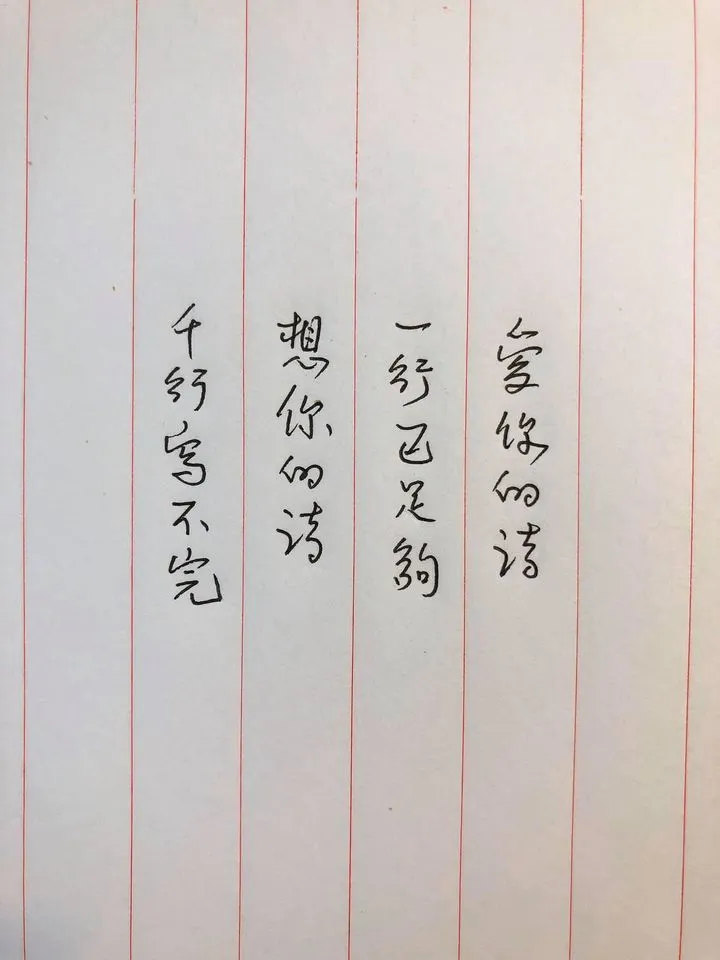 爱你的诗
一行已足夠
想你的诗
千行写不完